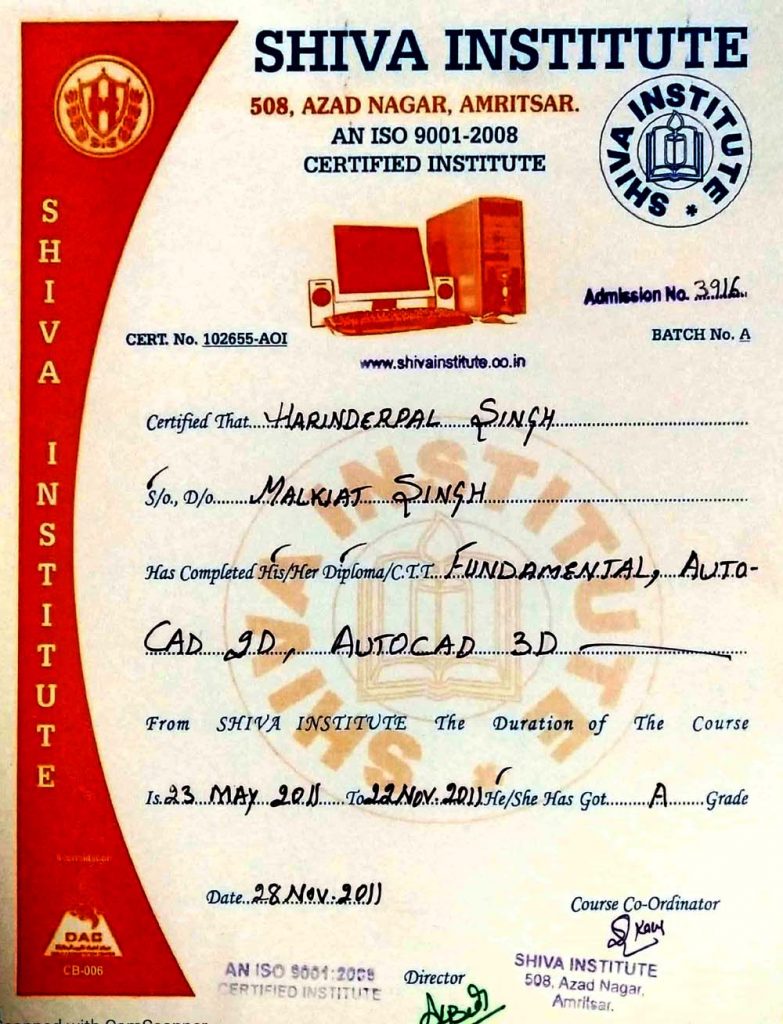 SHIVA INSTITUTE
508, AZAD NAGAR, AMRITSAR.
AN ISO 9001-2008
CERTIFIED INSTITUTE
SHIVA INSTITUTE *
SHIVA INSTITUTE
Admission No. 3916
CERT. No. 102655-AOI
BATCH No. A
www.shivainstitute.co.in
Certified That HARINDERPAL SINGH
S/o., D/o. MALKIAT SINGH
Has Completed His/Her Diploma/C.T.T. FUNDAMENTAL, AUTO-
CAD 2D, AUTOCAD 3D
SHIVA INSTITUTE *
From SHIVA INSTITUTE The Duration of The Course
Is. 23 MAY 2011 To 22 NOV. 2011 He/She Has Got A Grade
Date. 28 NOV. 2011
Course Co-Ordinator
DAC
CB-006
AN ISO 9001:2008
CERTIFIED INSTITUTE
Director
SHIVA INSTITUTE
508, Azad Nagar,
Amritsar.